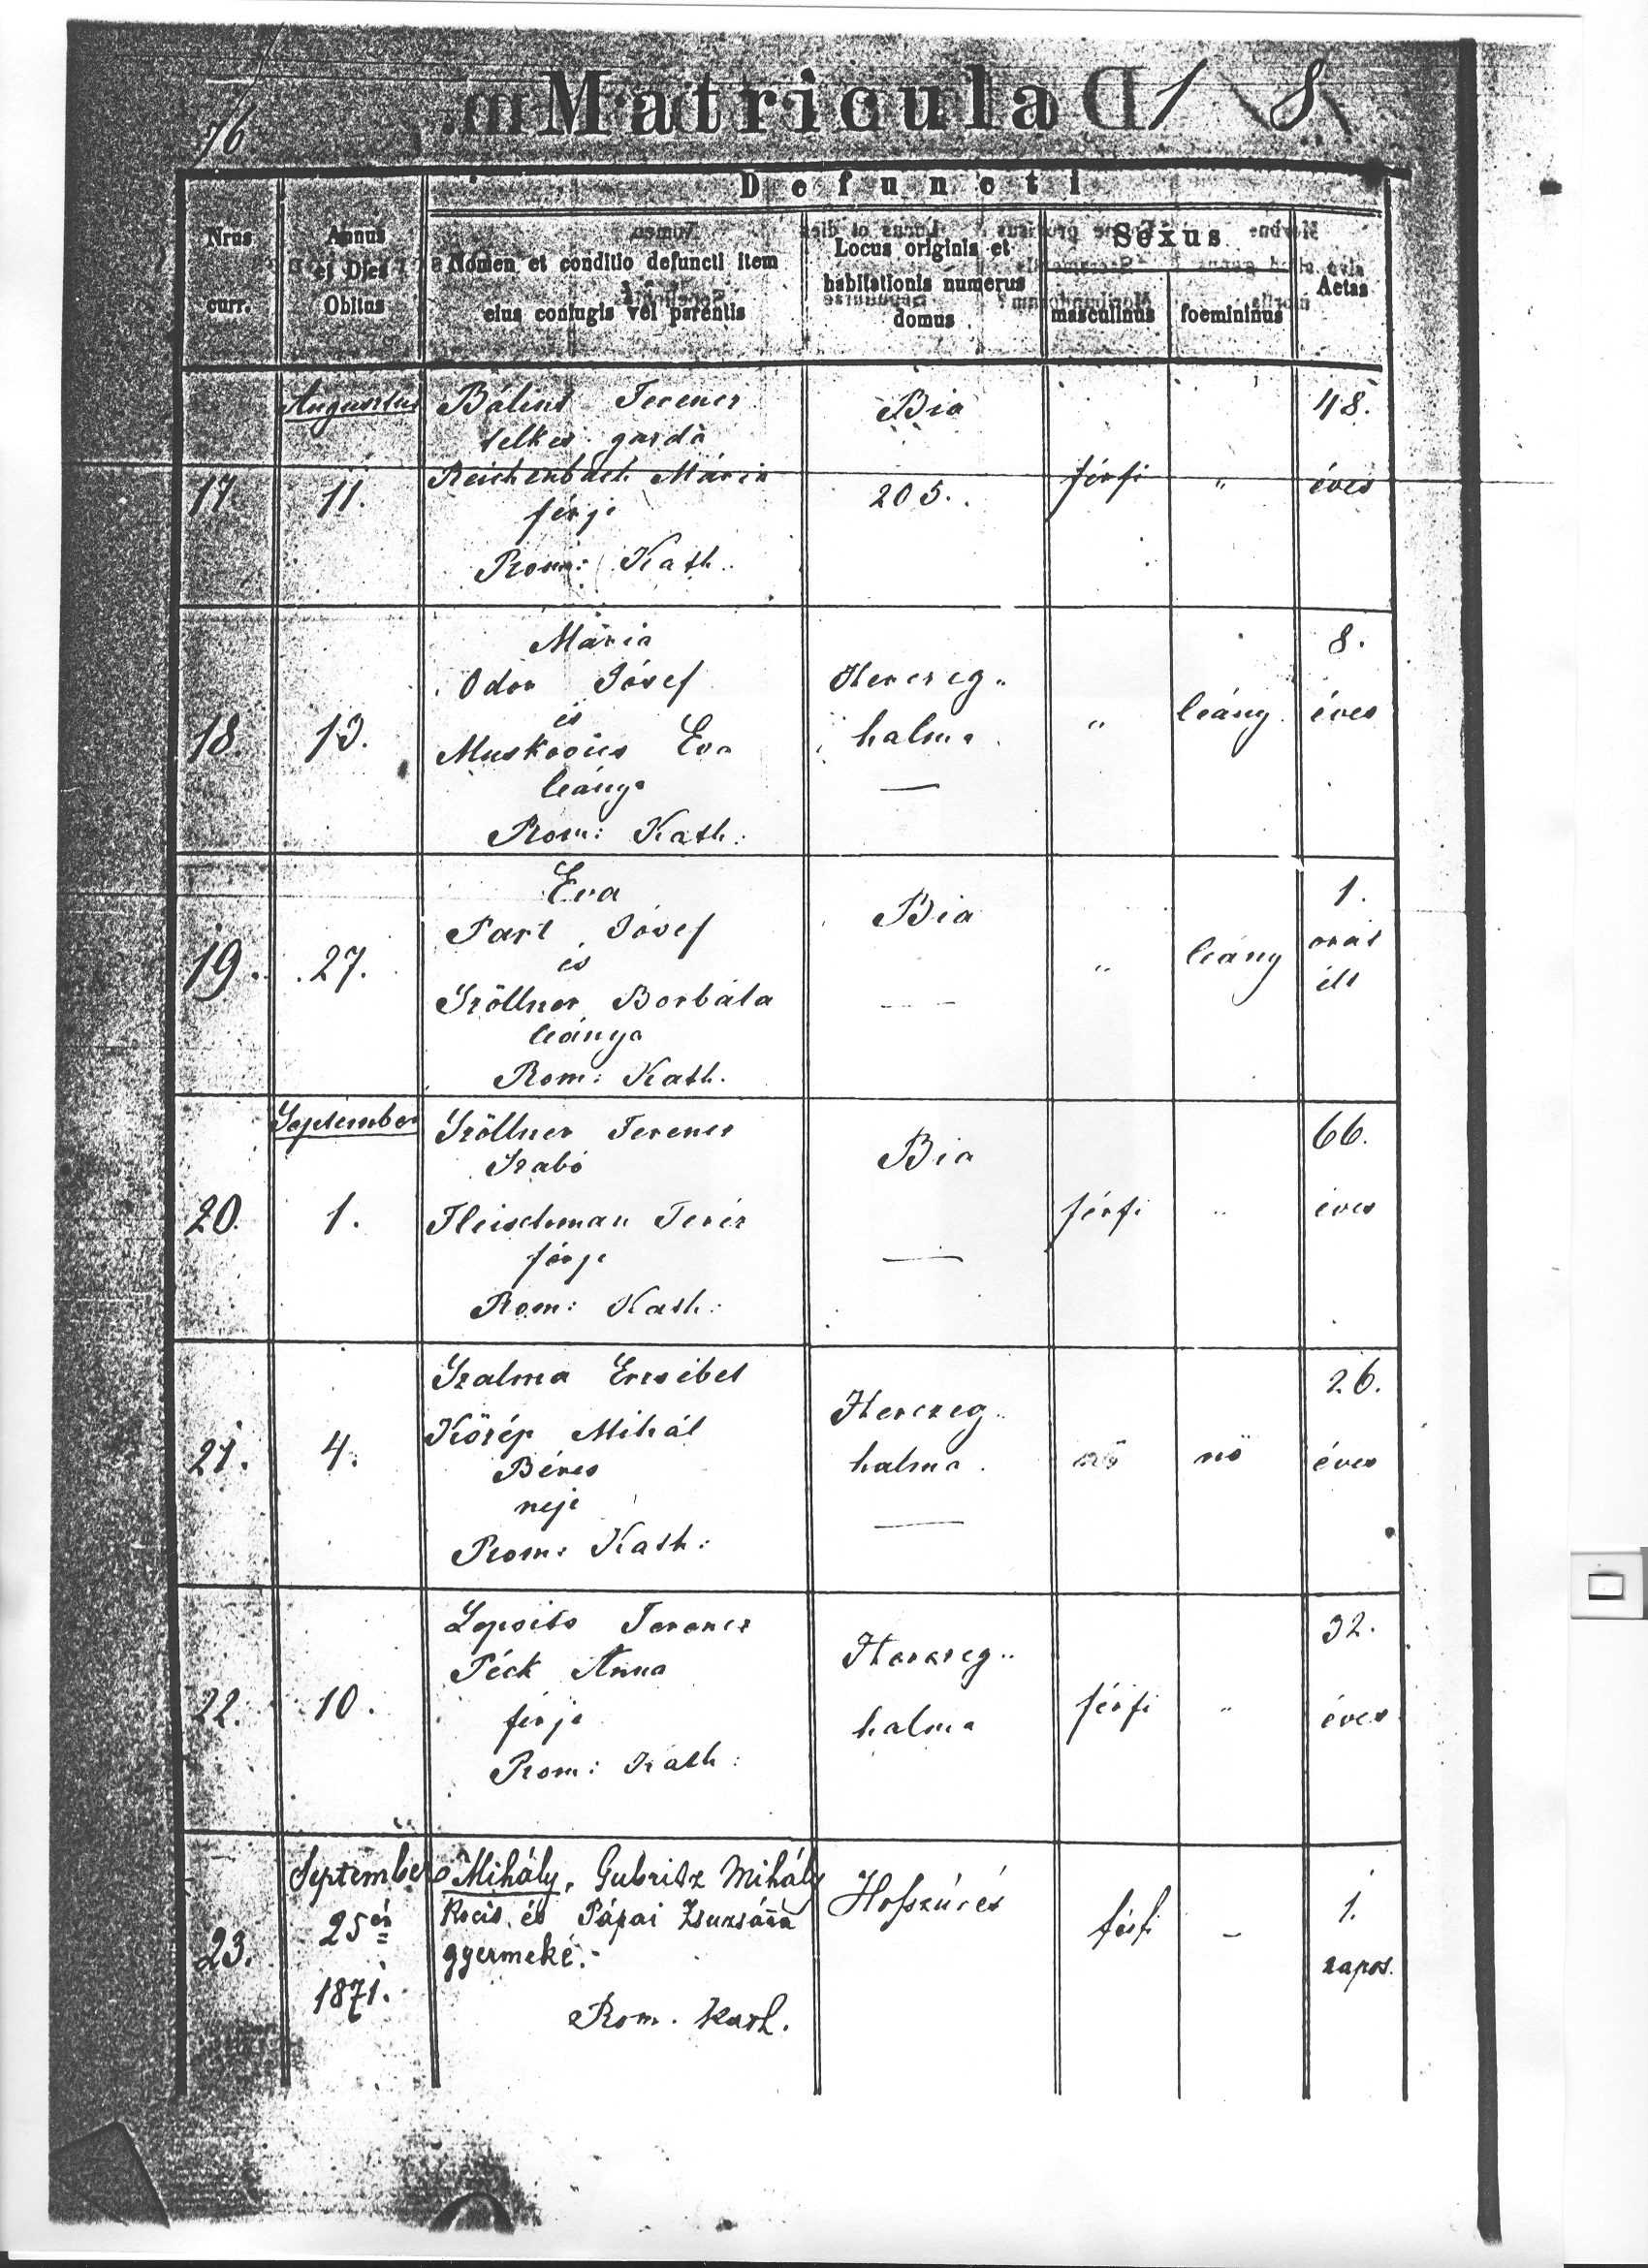 76
Matricula D 1 8
Defuncti
Nrus curr.
Annus et Dies Obitus
Nomen et conditio defuncti item eius coniugis vel parentis
Locus originis et habitationis numerus domus
Sexus
masculinus
foemininus
Aetas
Augustus Bálint Ferencz Bia 48.
telkes gazda
17 11. Reichenbach Mária 205. férfi " éves
férje
Rom: Kath.
Mária 8.
Odor Jósef Herczeg-
és
18. 13. Muskovics Eva halma. " leány éves
leánya —
Rom: Kath:
Eva 1.
Part Jósef Bia
és
19. 27. Szöllner Borbála " leány orát
leánya élt
Rom: Kath.
September Szöllner Ferencz Bia 66.
Szabó
20. 1. Fleischman Teréz férfi " éves
férje —
Rom: Kath:
Szalma Erzsébet 26.
Körép Mihál Herczeg-
21. 4. Béres halma. nő nő éves
neje —
Rom: Kath:
Ferencz Herczeg- 32.
Péck Anna
22. 10. férje halma férfi " éves
Rom: Kath:
September Mihály, Mihály 1.
25én Kocis és Pápai Zsuzsána férfi –
23. gyermeke.- napos.
1871. Rom. Kath.